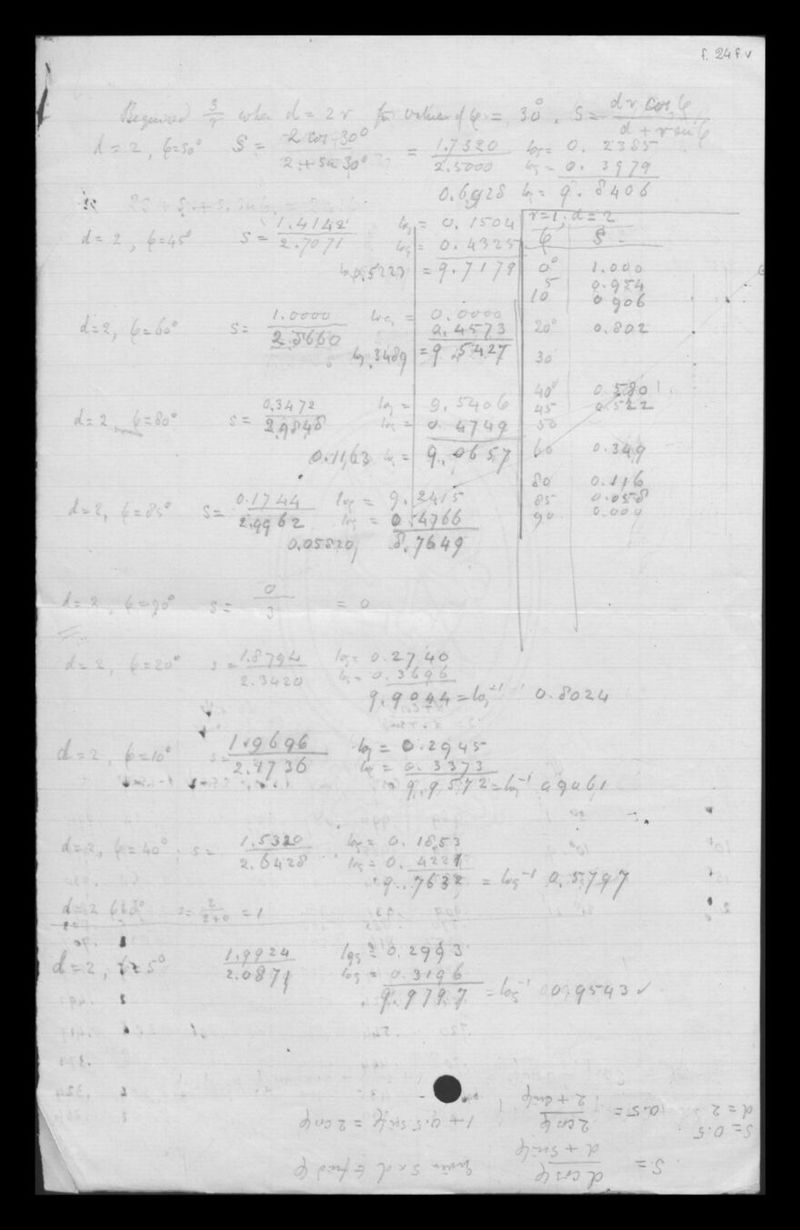 f. 248v
Required S/r when d = 2r for values of φ = 30°. S = dr cos φ / d + r sin φ
d = 2, φ=30° S = 2 cos 30° / 2 + sin 30° = 1.7320 / 2.5000 log = 0.2385
log = 0.3979
0.6928 log = 9.8406
d = 2, φ=45° S = 1.4142 / 2.7071 log = 0.1504
log = 0.4325
0.5223 = 9.7179
d=2, φ=60° S = 1.0000 / 2.8660 log = 0.0000
0.4573
log .3489 = 9.5427
d=2, φ=80° S = 0.3472 / 2.9848 log = 9.5406
log = 0.4749
0.1163 log = 9.0657
d=2, φ=85° S = 0.1744 / 2.9962 log = 9.2415
log = 0.4766
0.05820, 8.7649
r=1, d=2
φ S
0° 1.000
5 0.954
10 0.906
20° 0.802
30
40° 0.580
45 0.522
50
60 0.349
80 0.116
85 0.058
90 0.000
d=2, φ=90° S = 0 / 3 = 0
d=2, φ=20° S = 1.8794 / 2.3420 log = 0.2740
log = 0.3696
9.9044 = log⁻¹ 0.8024
d=2, φ=10° S = 1.9696 / 2.1736 log = 0.2945
log = 0.3373
9.9572 = log⁻¹ 0.9061
d=2, φ=40° S = 1.5320 / 2.6428 log = 0.1853
log = 0.4221
9.7632 = log⁻¹ 0.5797
d=2 φ=0° S = 2 / 2+0 = 1
d=2, φ=5° 1.9924 / 2.0871 log = 0.2993
log = 0.3196
9.9797 = log⁻¹ 0.9543 ✓
S = d cos φ / d + sin φ Given S & d to find φ
d = 2 S = 0.5 0.5 = 2 cos φ / 2 + sin φ 1 + 0.5 sin φ = 2 cos φ